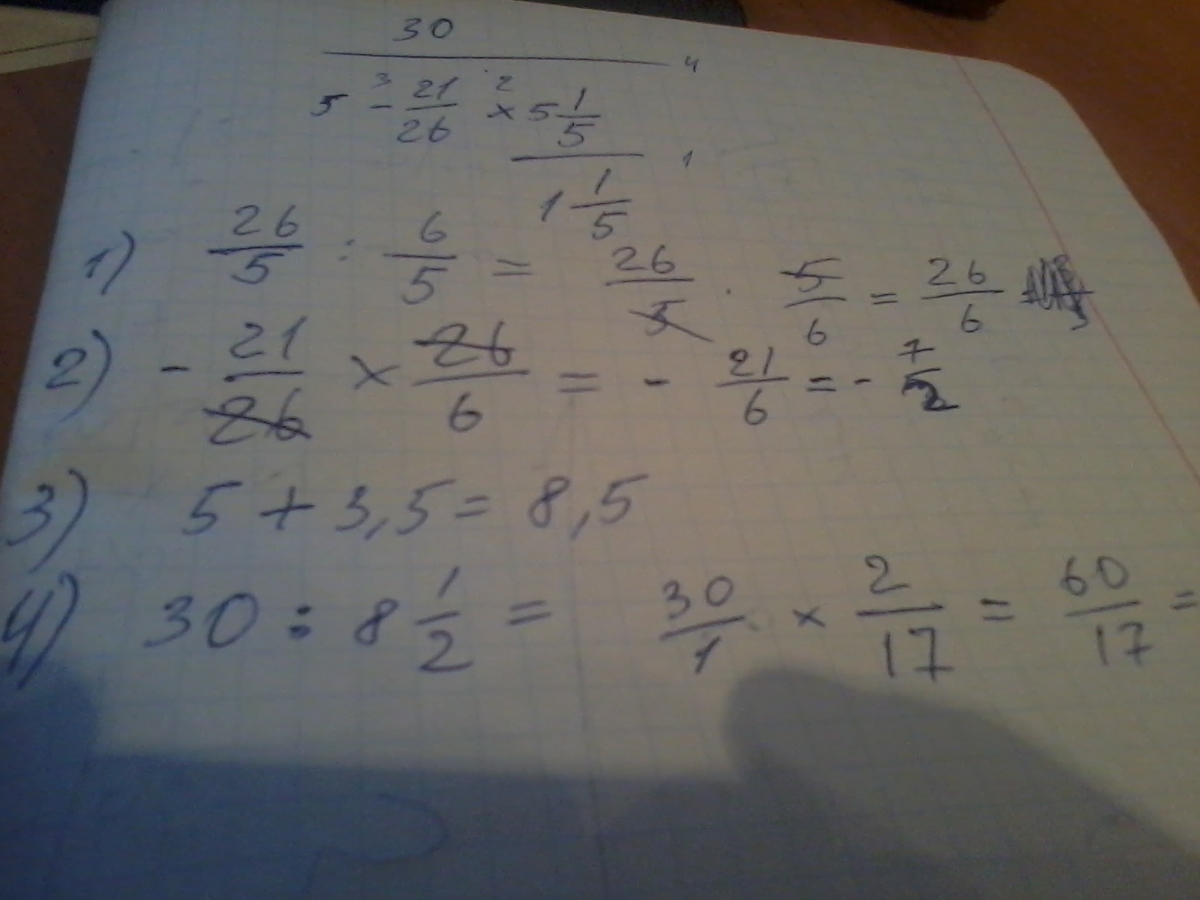 30
4
5 -³ 21/26 ײ 5 1/5
1
1 1/5
1) 26/5 : 6/5 = 26/5 · 5/6 = 26/6
2) - 21/26 × 26/6 = - 21/6 = - 7/2
3) 5 + 3,5 = 8,5
4) 30 : 8 1/2 = 30/1 × 2/17 = 60/17 =